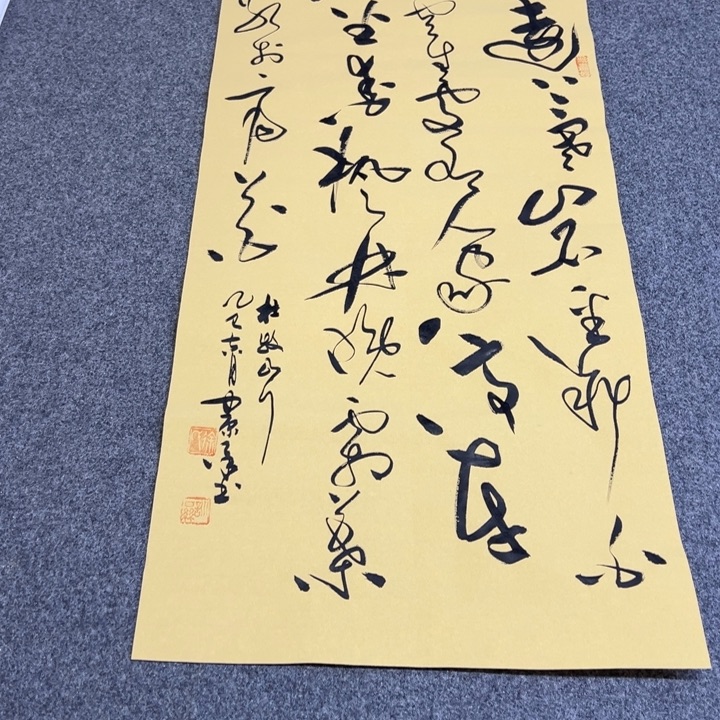 遠上寒山石徑斜白
雲生處有人家停車
坐愛楓林晚霜葉
紅於二月花
杜牧山行
乙巳 月 书